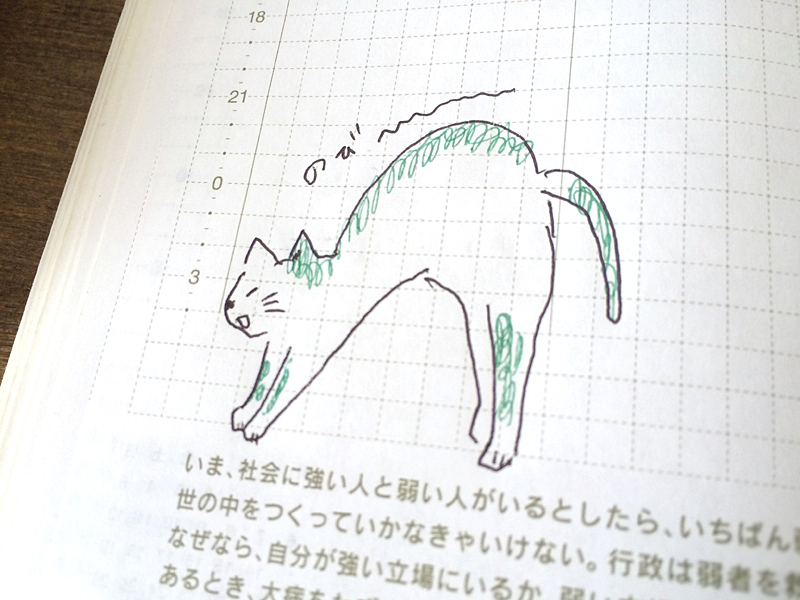 18
21
0
3
のび〜
いま、社会に強い人と弱い人がいるとしたら、いちばん
世の中をつくっていかなきゃいけない。行政は弱者を
なぜなら、自分が強い立場にいるか、弱い
あるとき、大病を